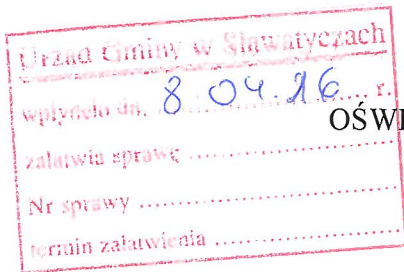 Urząd Gminy w Sławatyczach
wpłynęło dn. 8 04.16 r.
OŚWI
załatwia sprawę
Nr sprawy
termin załatwienia